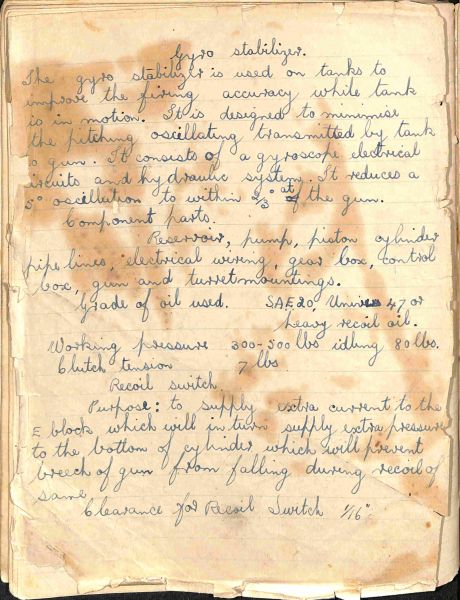 Gyro stabilizer.
The gyro stabilizer is used on tanks to
improve the firing accuracy while tank
is in motion. It is designed to minimise
the pitching oscillating transmitted by tank
to gun. It consists of a gyroscope, electrical
circuits and hydraulic system. It reduces a
5° oscillution to within 2/3° at the gun.
Component parts.
Reservoir, pump, piston cylinder
pipe lines, electrical wiring, gear box, control
box, gun and turret mountings.
Grade of oil used. SAE 20, 47 or
heavy recoil oil.
Working pressure 300-500 lbs idling 80 lbs.
Clutch tension 7 lbs
Recoil switch
Purpose: to supply extra current to the
E block which will in turn supply extra pressure
to the bottom of cylinder which will prevent
breech of gun from falling during recoil of
same
Clearance for Recoil Switch 1/16"